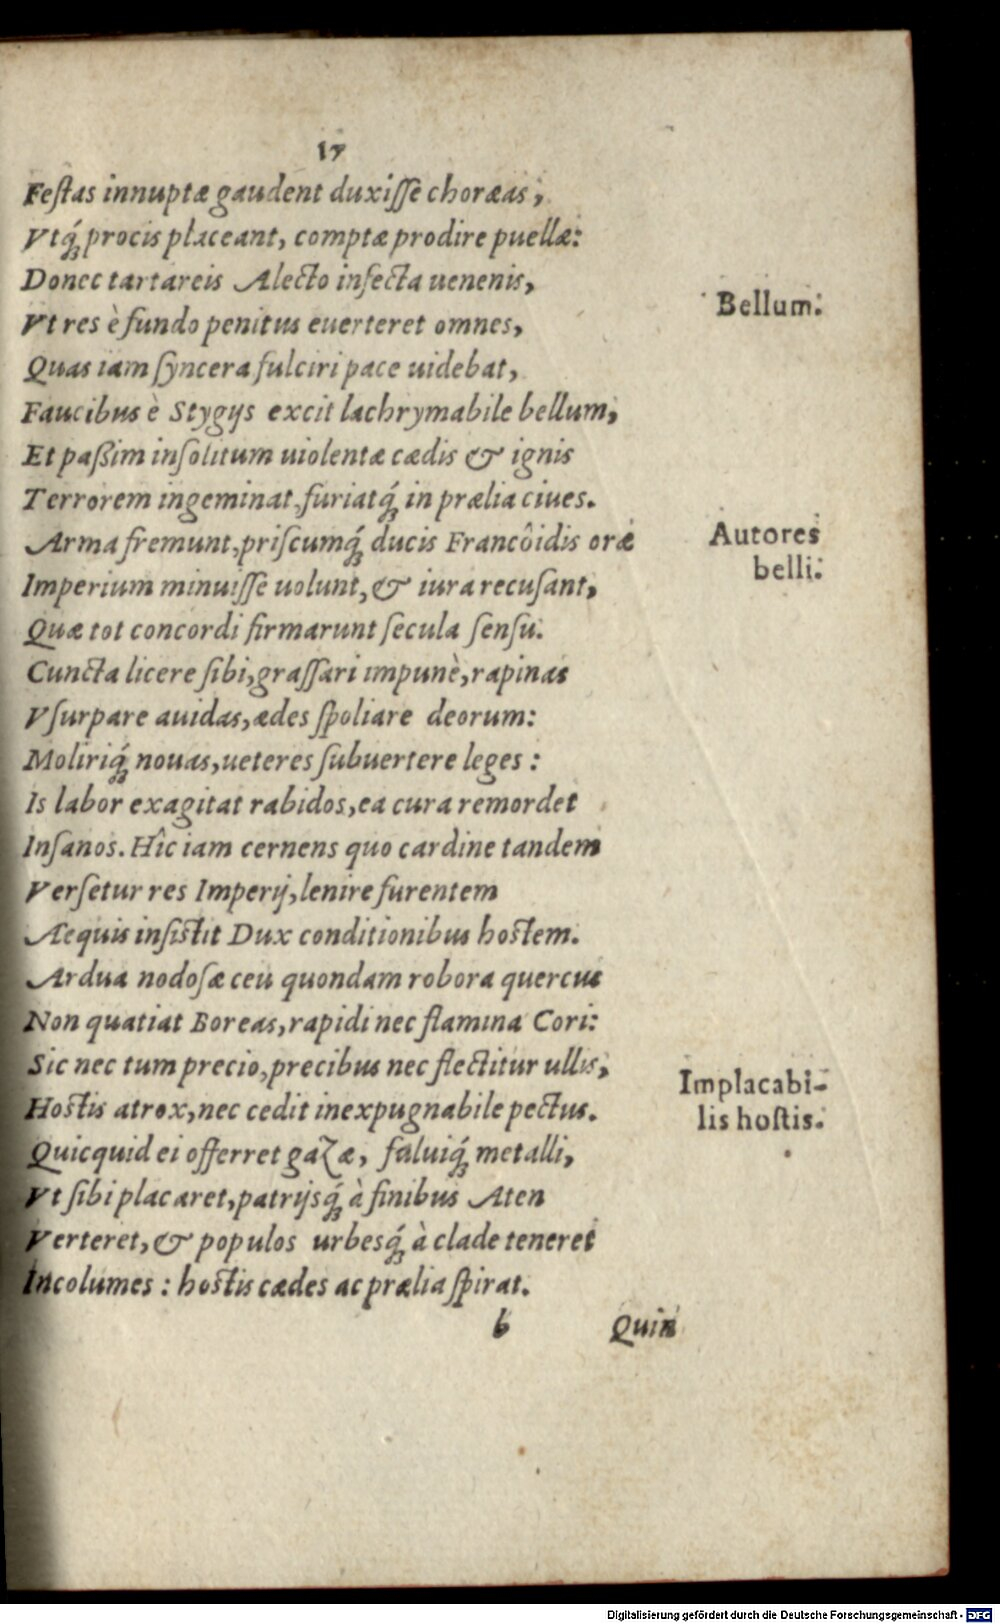 17
Feſtas innuptæ gaudent duxiſſe choræas,
Vtq́ꝫ procis placeant, comptæ prodire puellæ:
Donec tartareis Alecto infecta uenenis,
Bellum.
Vt res è fundo penitus euerteret omnes,
Quas iam ſyncera fulciri pace uidebat,
Faucibus è Stygijs excit lachrymabile bellum,
Et paßim inſolitum uiolentæ cædis & ignis
Terrorem ingeminat, furiatq́ꝫ in prælia ciues.
Arma fremunt, priſcumq́ꝫ ducis Francôidis oræ
Autores
belli.
Imperium minuiſſe uolunt, & iura recuſant,
Quæ tot concordi firmarunt ſecula ſenſu.
Cuncta licere ſibi, graſſari impunè, rapinas
Vſurpare auidas, ædes ſpoliare deorum:
Moliriq́ꝫ nouas, ueteres ſubuertere leges:
Is labor exagitat rabidos, ea cura remordet
Inſanos. Hîc iam cernens quo cardine tandem
Verſetur res Imperij, lenire furentem
Aequis inſiſtit Dux conditionibus hoſtem.
Ardua nodoſæ ceu quondam robora quercus
Non quatiat Boreas, rapidi nec flamina Cori:
Sic nec tum precio, precibus nec flectitur ullis,
Implacabi-
lis hoſtis.
Hoſtis atrox, nec cedit inexpugnabile pectus.
Quicquid ei offerret gazæ, fuluiq́ꝫ metalli,
Vt ſibi placaret, patrijsq́ꝫ à finibus Aten
Verteret, & populos urbesq́ꝫ à clade teneret
Incolumes: hoſtis cædes ac prælia ſpirat.
b Quin
Digitalisierung gefördert durch die Deutsche Forschungsgemeinschaft - DFG